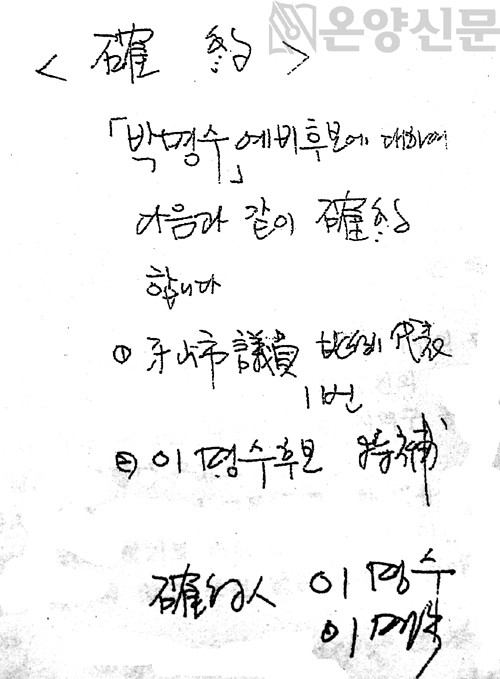 온양신문
< 確約 >
「박명수」 예비후보에 대하여
다음과 같이 確約
합니다
① 牙山市議員 比例代表
1번
② 이명수후보 特補
確約人 이명수
이명수